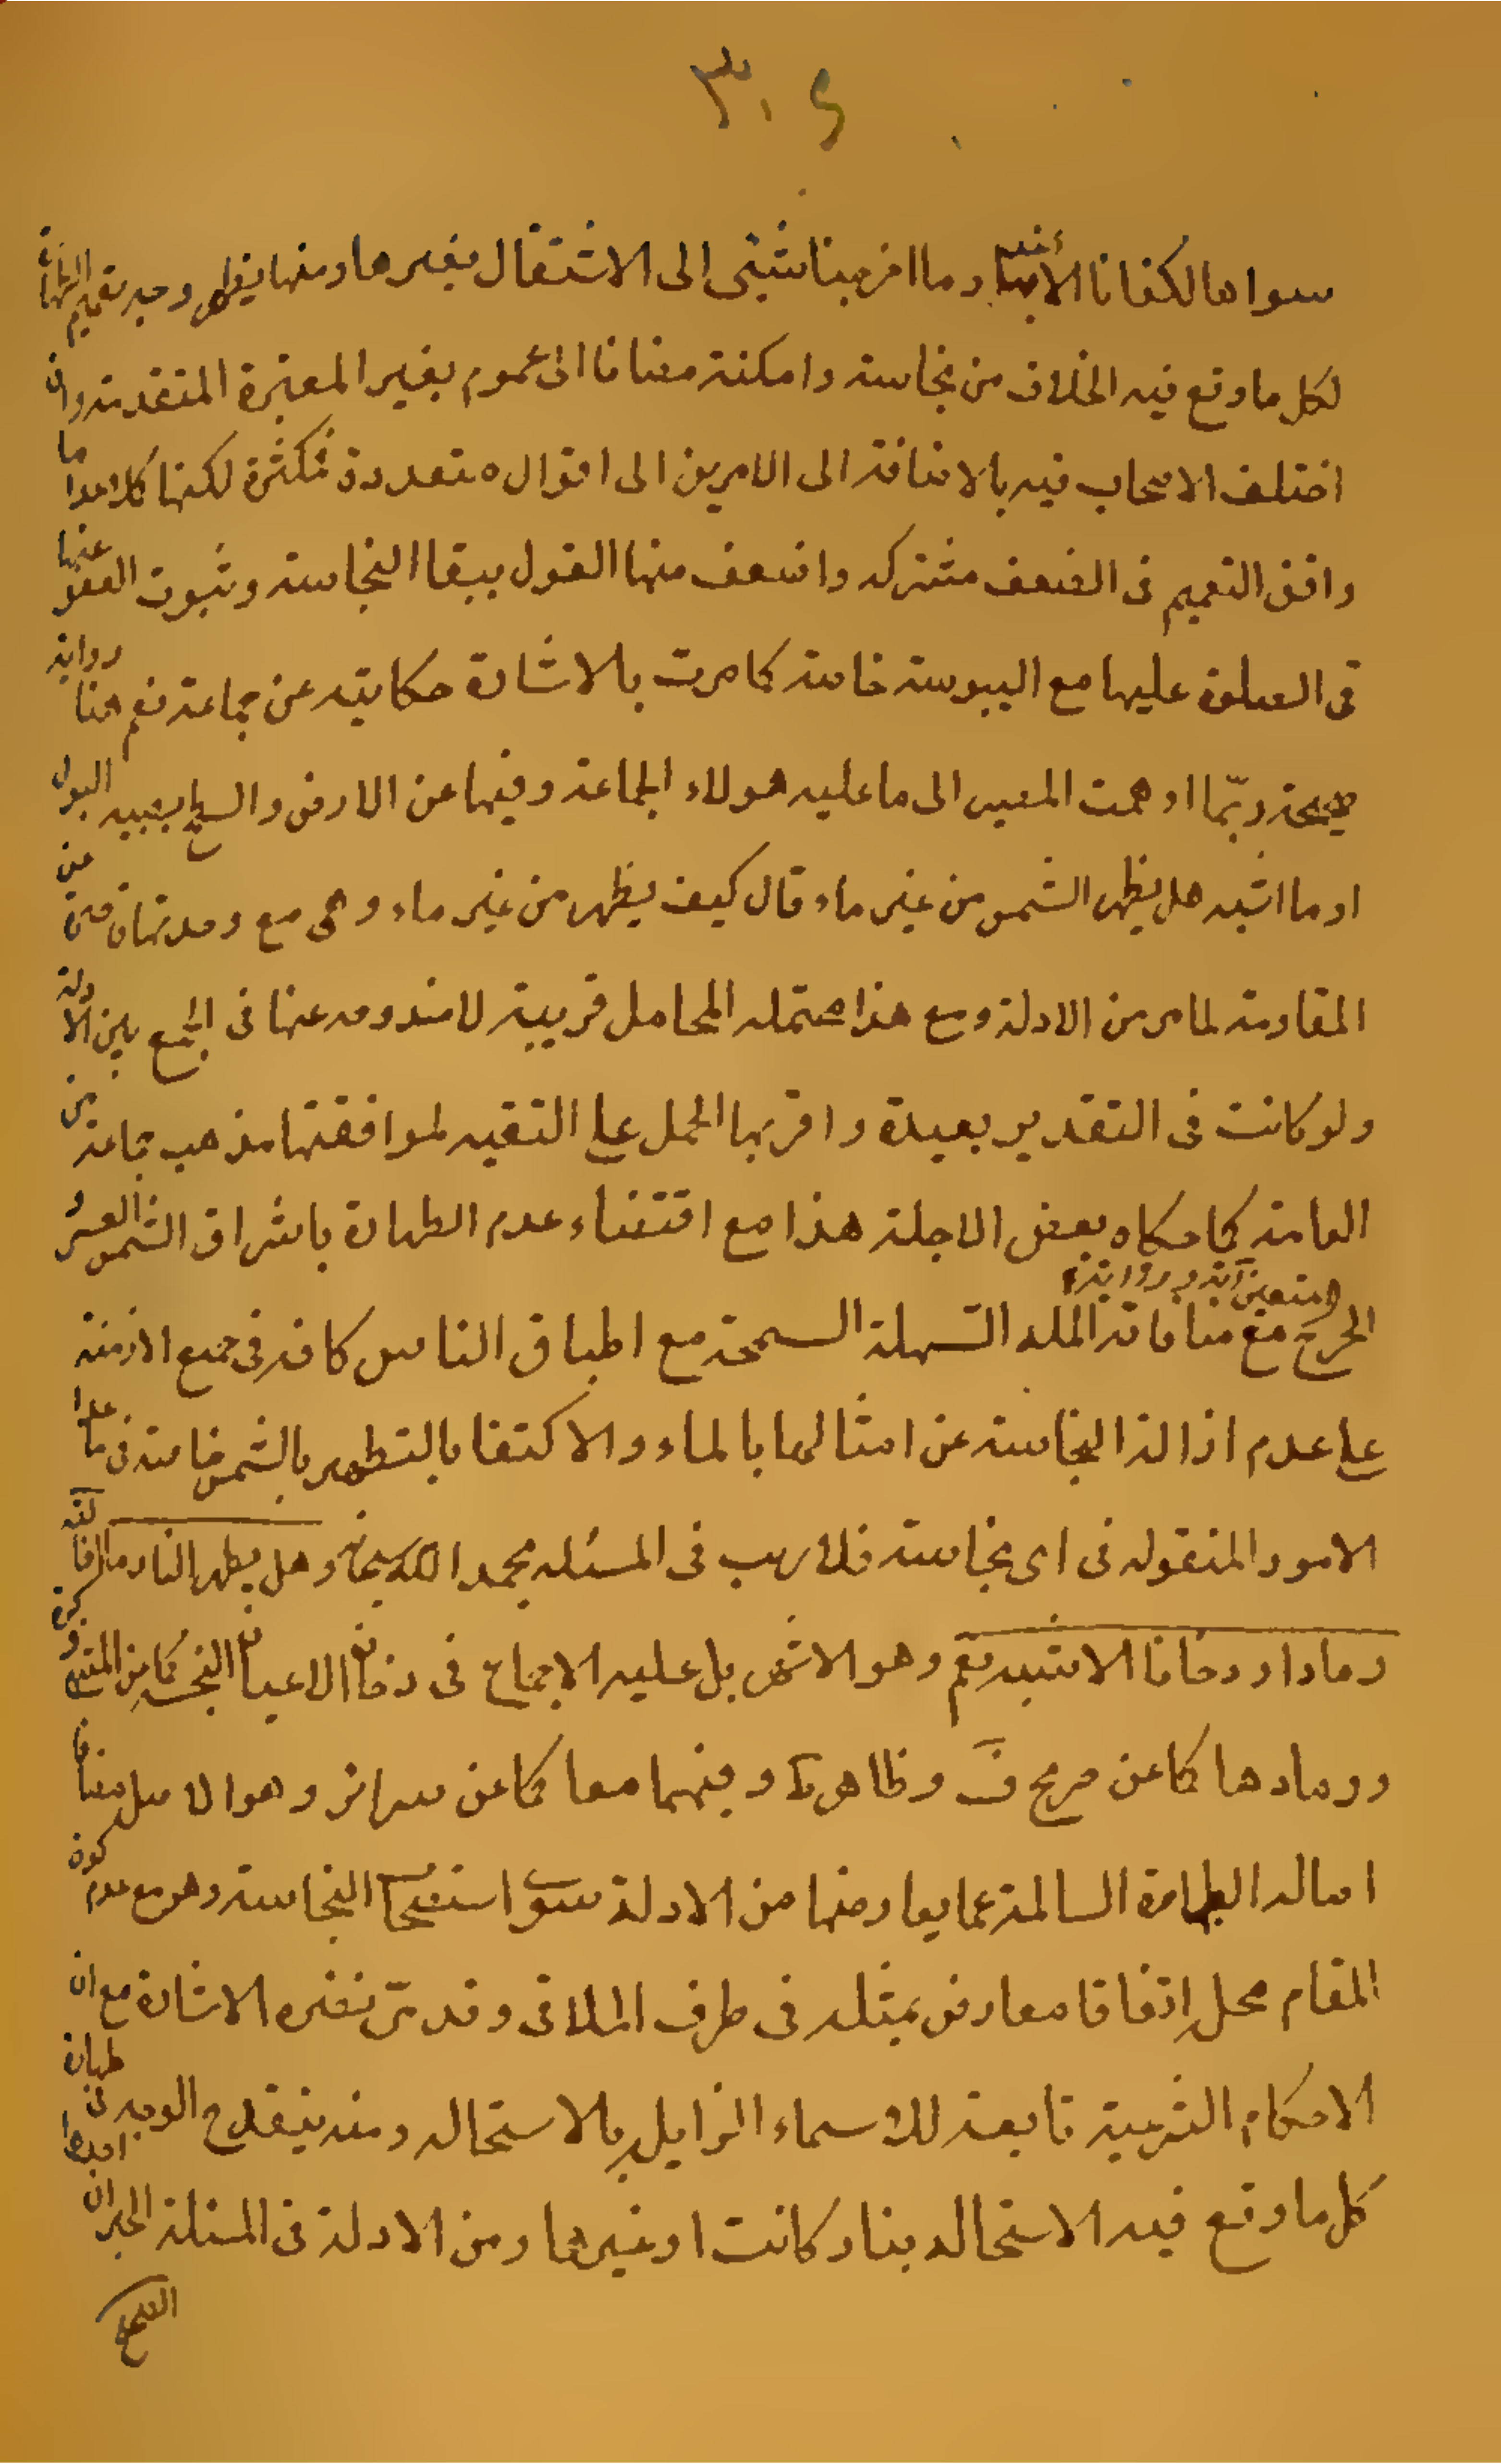 ٣٠٤
سواها لكفانا الأخبار وما اخرجنا شيئي الى الاشتغال بغيرها ومنها يظهر وجه تعميم الطهارة
لكل ما وقع فيه الخلاف من نجاسة وامكنة مضافا الى عموم بغير المعتبرة المتقدمة وان
اختلف الاصحاب فيه بالاضافة الى الامرين الى اقوال متعددة متكثرة لكنها كلا عدا ما
وافق التعميم فى الضعف مشتركه واضعف منها القول ببقا النجاسة وثبوت العفو عنها
فى الصلوة عليها مع اليبوسة خاصة كما مرت بالاشارة حكايته عن جماعة نعم هنا رواية
صحيحة ربّما اوهمت المصير الى ما عليه هولاء الجماعة وفيها عن الارض والسطح يصيبه البول
او ما اشبه هل يطهره الشمس من غير ماء قال كيف يطهر من غير ماء وهى مع وحدتها قاصرة عن
المقاومة لما مر من الادلة ومع هذا محتملة المحامل قريبة لا مندوحة عنها فى الجمع بين الادلة
ولو كانت فى التقدير بعيدة واقربها الحمل على التقيه لموافقتها مذهب جماعة من
العامة كما حكاه بعض الاجلة هذا مع اقتضاء عدم الطهارة باشراق الشمس العسر و
الحرج المنفيين آية ورواية مع منافاته الملة السهلة السمحة مع اطباق الناس كافة فى جميع الازمنة
على عدم ازالة النجاسة عن امثالها بالماء والاكتفا بالتطهير بالشمس خاصة فى ما عدا
الامور المنقوله فى اى نجاسة فلا ريب فى المسئله بحمد الله سبحانه وهل يطهر النار ما احالته
رمادا او دخانا الاشبه نعم وهو الاشهر بل عليه الاجماع فى دخان الاعيان النجسة كما عن
ورمادها كما عن صريح ف وظاهر ط وفيهما معا كما عن سرائر وهو الاصل مضافا
اصالة الطهارة السالمة عما يعارضها من الادلة سوى استصحاب النجاسة وهو مع عدم كون
المقام محل اتفاقا معارض بمثله فى طرف الملاقى وقد مرّ نظيره الاشارة مع ان
الاحكام الشرعية تابعة للاسماء الزايل بالاستحاله ومنه ينقدح الوجه فى طهارة
كل ما وقع فيه الاستحالة بنار كانت او غيرها ومن الادلة فى المسئلة الخبران احدهما
الصحيح